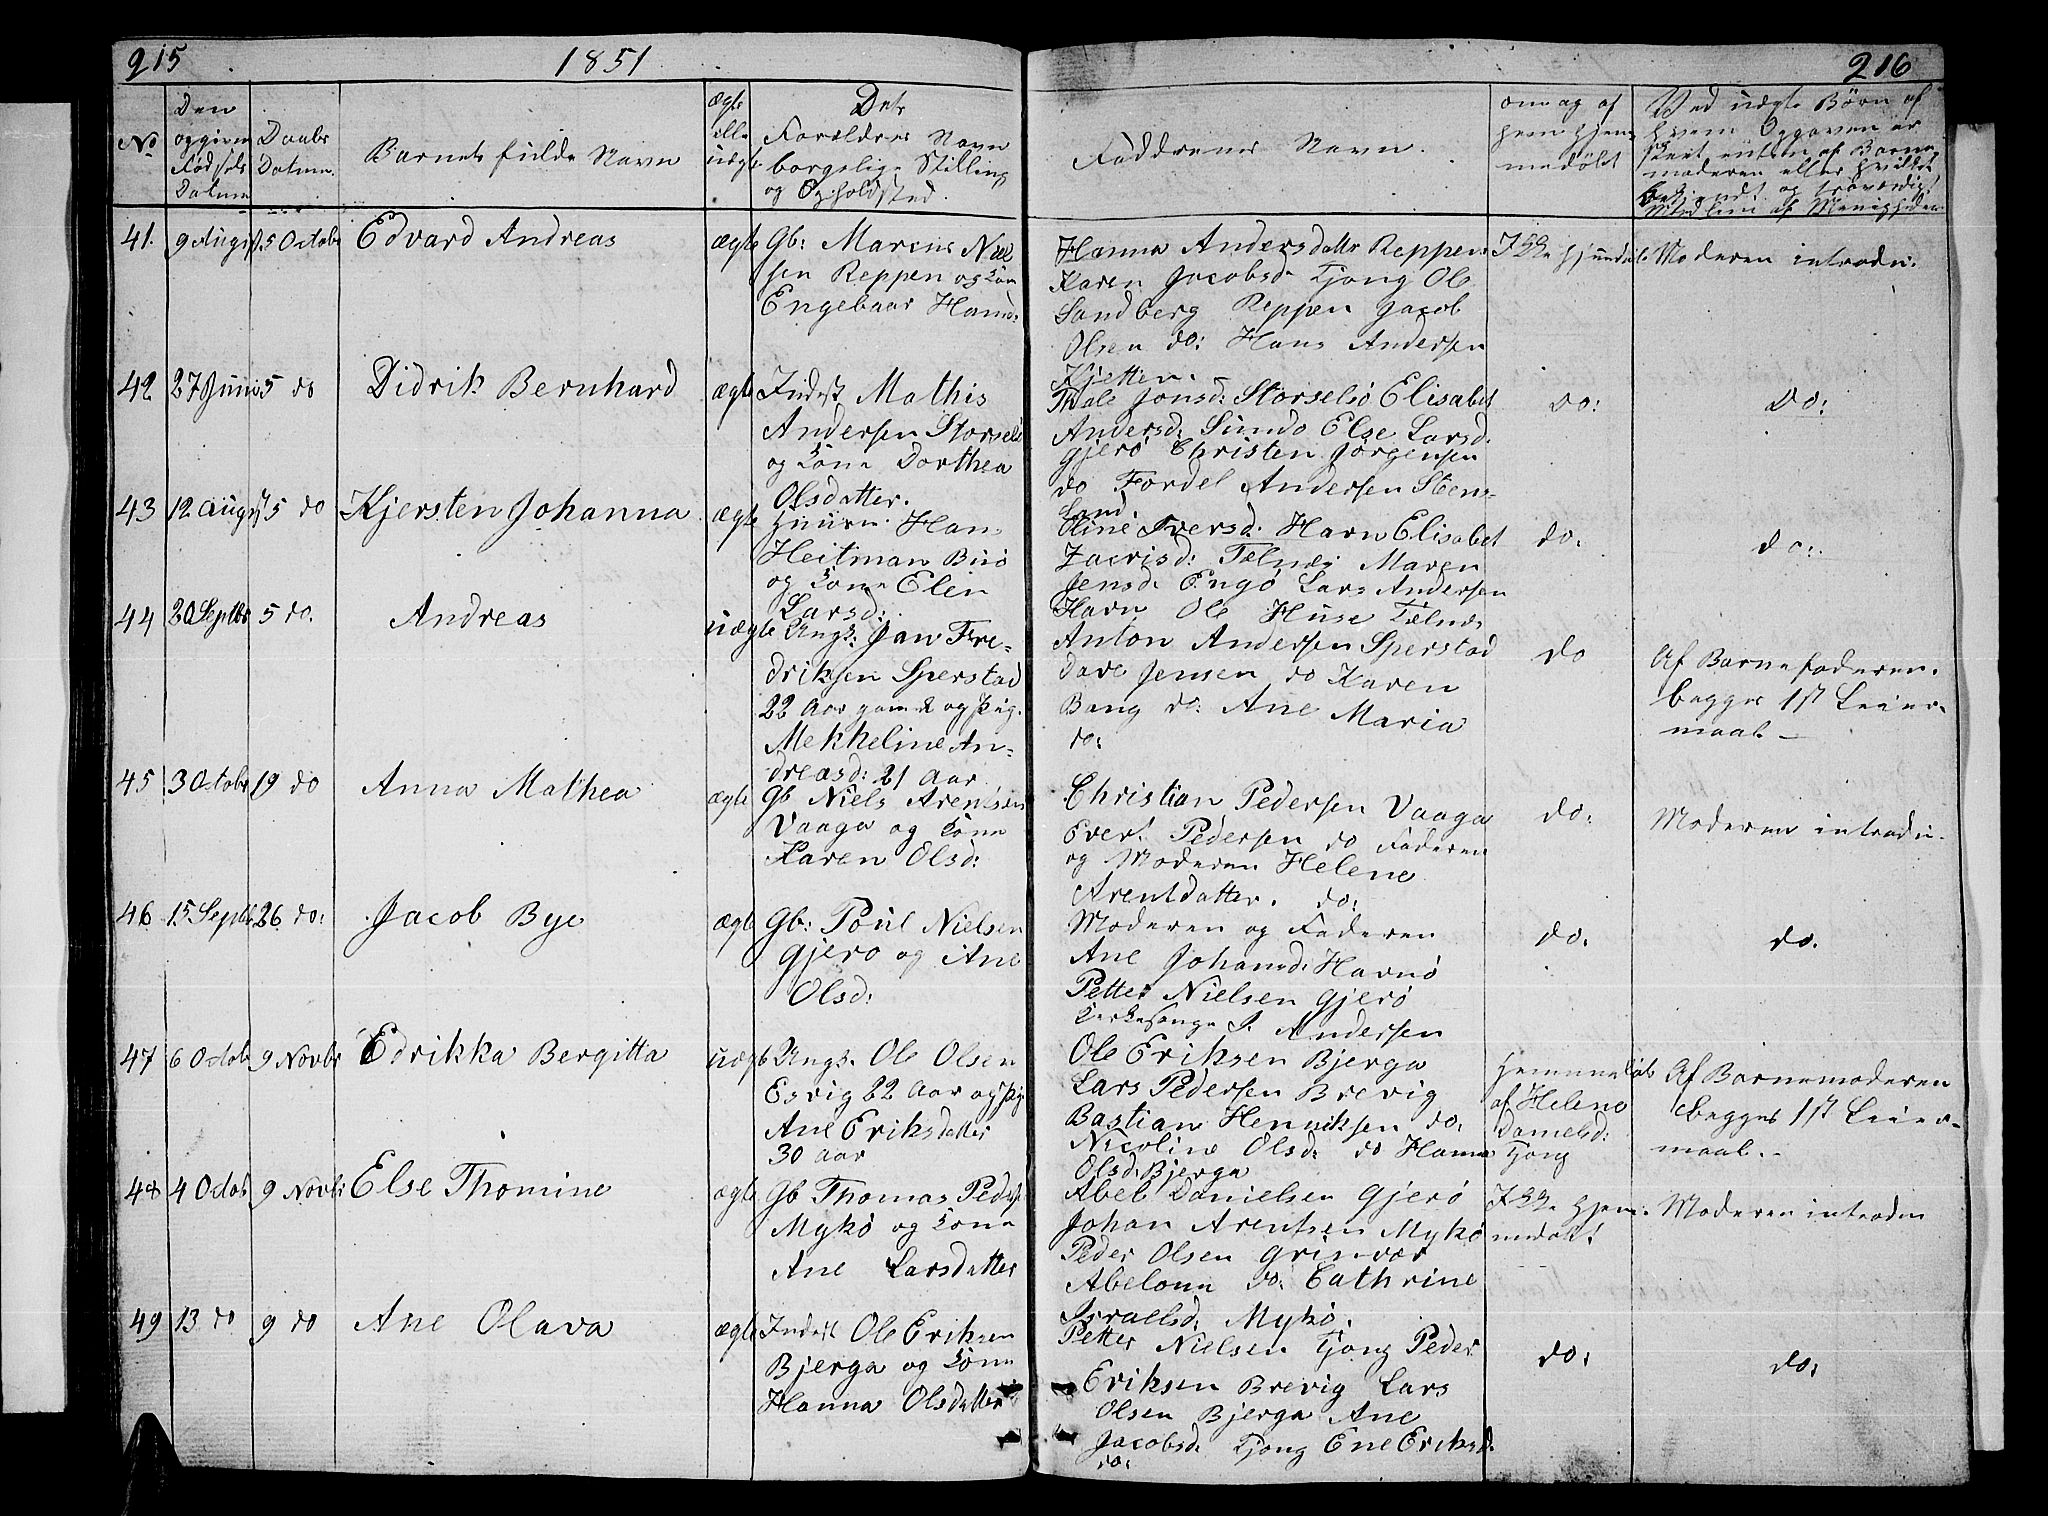 215
1851
216
No
Den
opgivne
Fødsels
Datum
Daabs
Datum.
Barnets fulde Navn
ægte
elle
uægt.
Dets
Forældres Navn
borgelige Stilling
og Opholdsted.
Faddrenes Navn.
om og af
hvem hjem
medøbt
Ved uægte Børn af
hvem Opgaven er
skeet enten af Barne
moderen eller hvilket
bekjendt og troværdig
Medlem af Menigheden
41.
9 August
5 Octobr
Edvard Andreas
ægte
Gb: Marcus Niel
sen Reppen og Kone
Engebaar Hansd.
Hanna Andersdatter Reppen.
Karen Jacobsd. Tjong Ole
Sandberg Reppen Jacob
Olsen do: Hans Andersen
Kjetten.
Ikke hjemdøbt.
Moderen introdu.
42
27 Juni
5 do
Didrik Bernhard
ægte
Inderst Mathis
Andersen Storselø
og Kone Dorthea
Olsdatter.
Thale Jonsd: Storselsø Elisabet
Andersd: Sundø Else Larsd.
Gjerø Christen Jørgensen
do Fordel Andersen Steens-
land.
do:
do:
43
12 August
5 do
Kjersten Johanna
ægte
Huusm. Han
Heitman Buø
og Kone Elen
Larsd:
Oline Iversd. Havn Elisabet
Zacrisd: Telnæs Maren
Jensd. Engø Lars Andersen
Havn Ole Huse Telnæs
do.
do:.
44
20 Septbr
5 do.
Andreas
uægte
Ungk: Jan Fre-
driksen Sperstad
22 Aar gamel og Pig.
Mekheline An-
dreasd: 21 Aar
Anton Andersen Sperstad
Dave Jensen do Karen
Bang do: Ane Maria
do:
do
Af Barnefaderen.
begges 1st Leier-
maal -
45
3 Octobr
19 do
Anna Mathea
ægte
Gb Niels Arentsen
Vaaga og Kone
Karen Olsd:
Christian Pedersen Vaaga
Evert Pedersen do Faderen
og Moderen Helene
Arentdatter. do:
do:
Moderen introdu.
46
15 Septb
26 do:
Jacob Bye
ægte
Gb: Poul Nielsen
Gjerø og Ane
Olsd:
Moderen og Faderen
Ane Johansd. Havnø
Petter Nielsen Gjerø
Kirkesanger J. Andersen
do.
do.
47
6 Octob
9 Novbr
Edrikka Bergitta
uægt
Ungk. Ole Olsen
Esvig 22 Aar og Pig
Ane Eriksdatter
30 Aar
Ole Eriksen Bjerga
Lars Pedersen Brevig
Bastian Henriksen do.
Nicoline Olsd: do Hanna
Olsd. Bjerga
Hjemmedøbt
af Helene
Danielsd:
Tjong
Af Barnemoderen
begges 1st Leier-
maal.-
48
4 Octob
9 Novbr
Else Thomine
ægte
Gb Thomas Peders
Mykø og Kone
Ane Larsdatter
Abel Danielsen Gjerø
Johan Arentsen Mykø
Peder Olsen Grinvær
Abelona do: Cathrine
Israelsd. Mykø.
Ikke hjem-
medøbt
Moderen introdu
49
13 do
9 do
Ane Olava
ægte
Inderst Ole Eriksen
Bjerga og Kone
Hanna Olsdatter
Petter Nielsen Tjong Peder
Eriksen Brevig Lars
Olsen Bjerga Ane
Jacobsd. Tjong Ene Eriksd.
do:
do:
do: